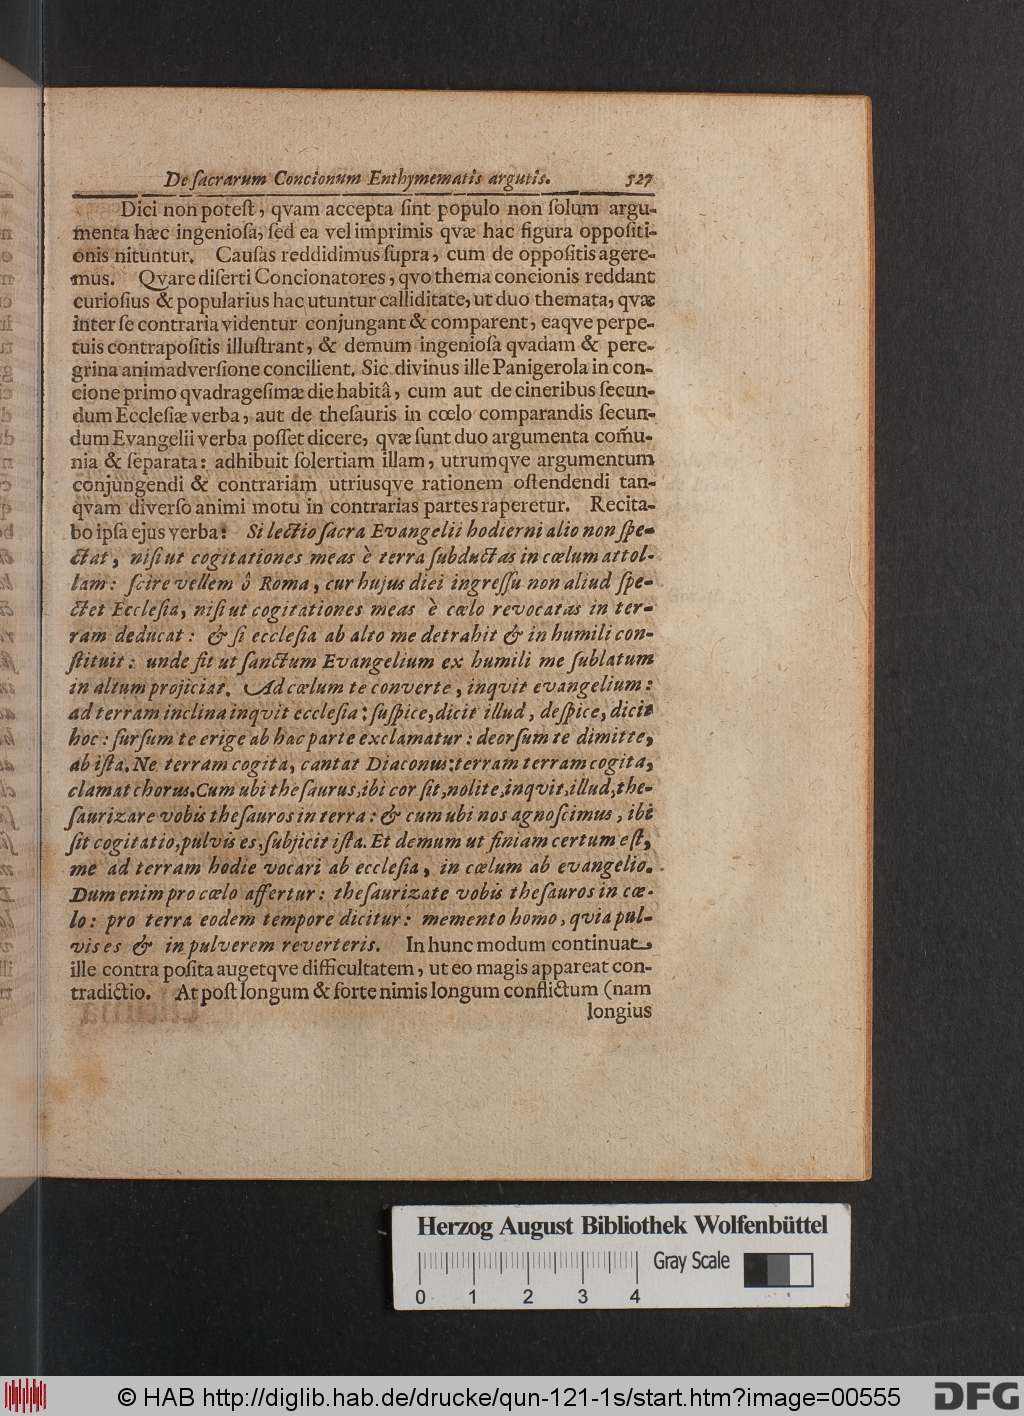 De ſacrarum Concionum Enthymematis argutis. 527
Dici non poteſt, qvam accepta ſint populo non ſolum argu-
menta hæc ingenioſa, ſed ea vel imprimis qvæ hac figura oppoſiti-
onis nituntur. Cauſas reddidimus ſupra, cum de oppoſitis agere-
mus. Qvare diſerti Concionatores, qvo thema concionis reddant
curioſius & popularius hac utuntur calliditate, ut duo themata, qvæ
inter ſe contraria videntur conjungant & comparent, eaqve perpe-
tuis contrapoſitis illuſtrant, & demum ingenioſa qvadam & pere-
grina animadverſione concilient. Sic divinus ille Panigerola in con-
cione primo qvadrageſimæ die habitâ, cum aut de cineribus ſecun-
dum Eccleſiæ verba, aut de theſauris in cœlo comparandis ſecun-
dum Evangelii verba poſſet dicere, qvæ ſunt duo argumenta com̃u-
nia & ſeparata: adhibuit ſolertiam illam, utrumqve argumentum
conjungendi & contrariam utriusqve rationem oſtendendi tan-
qvam diverſo animi motu in contrarias partes raperetur. Recita-
bo ipſa ejus verba: Si lectio ſacra Evangelii hodierni alio non ſpe-
ctat, niſi ut cogitationes meas è terra ſubductas in cœlum attol-
lam: ſcire vellem ô Roma, cur hujus diei ingreſſu non aliud ſpe-
ctet Eccleſia, niſi ut cogitationes meas è cœlo revocatas in ter-
ram deducat: & ſi eccleſia ab alto me detrahit & in humili con-
ſtituit: unde fit ut ſanctum Evangelium ex humili me ſublatum
in altum projiciat. Ad cœlum te converte, inqvit evangelium:
ad terram inclina inqvit eccleſia: ſuſpice, dicit illud, deſpice, dicit
hoc: ſurſum te erige ab hac parte exclamatur: deorſum te dimitte,
ab iſta. Ne terram cogita, cantat Diaconus: terram terram cogita,
clamat chorus. Cum ubi theſaurus, ibi cor ſit, nolite, inqvit, illud, the-
ſaurizare vobis theſauros in terra: & cum ubi nos agnoſcimus, ibi
ſit cogitatio, pulvis es, ſubjicit iſta. Et demum ut finiam certum eſt,
me ad terram hodie vocari ab eccleſia, in cœlum ab evangelio.
Dum enim pro cœlo affertur: theſaurizate vobis theſauros in cœ-
lo: pro terra eodem tempore dicitur: memento homo, qvia pul-
vis es & in pulverem reverteris. In hunc modum continuat
ille contra poſita augetqve difficultatem, ut eo magis appareat con-
tradictio. At poſt longum & forte nimis longum conflictum (nam
longius
Herzog August Bibliothek Wolfenbüttel
Gray Scale
0 1 2 3 4
© HAB http://diglib.hab.de/drucke/qun-121-1s/start.htm?image=00555
DFG